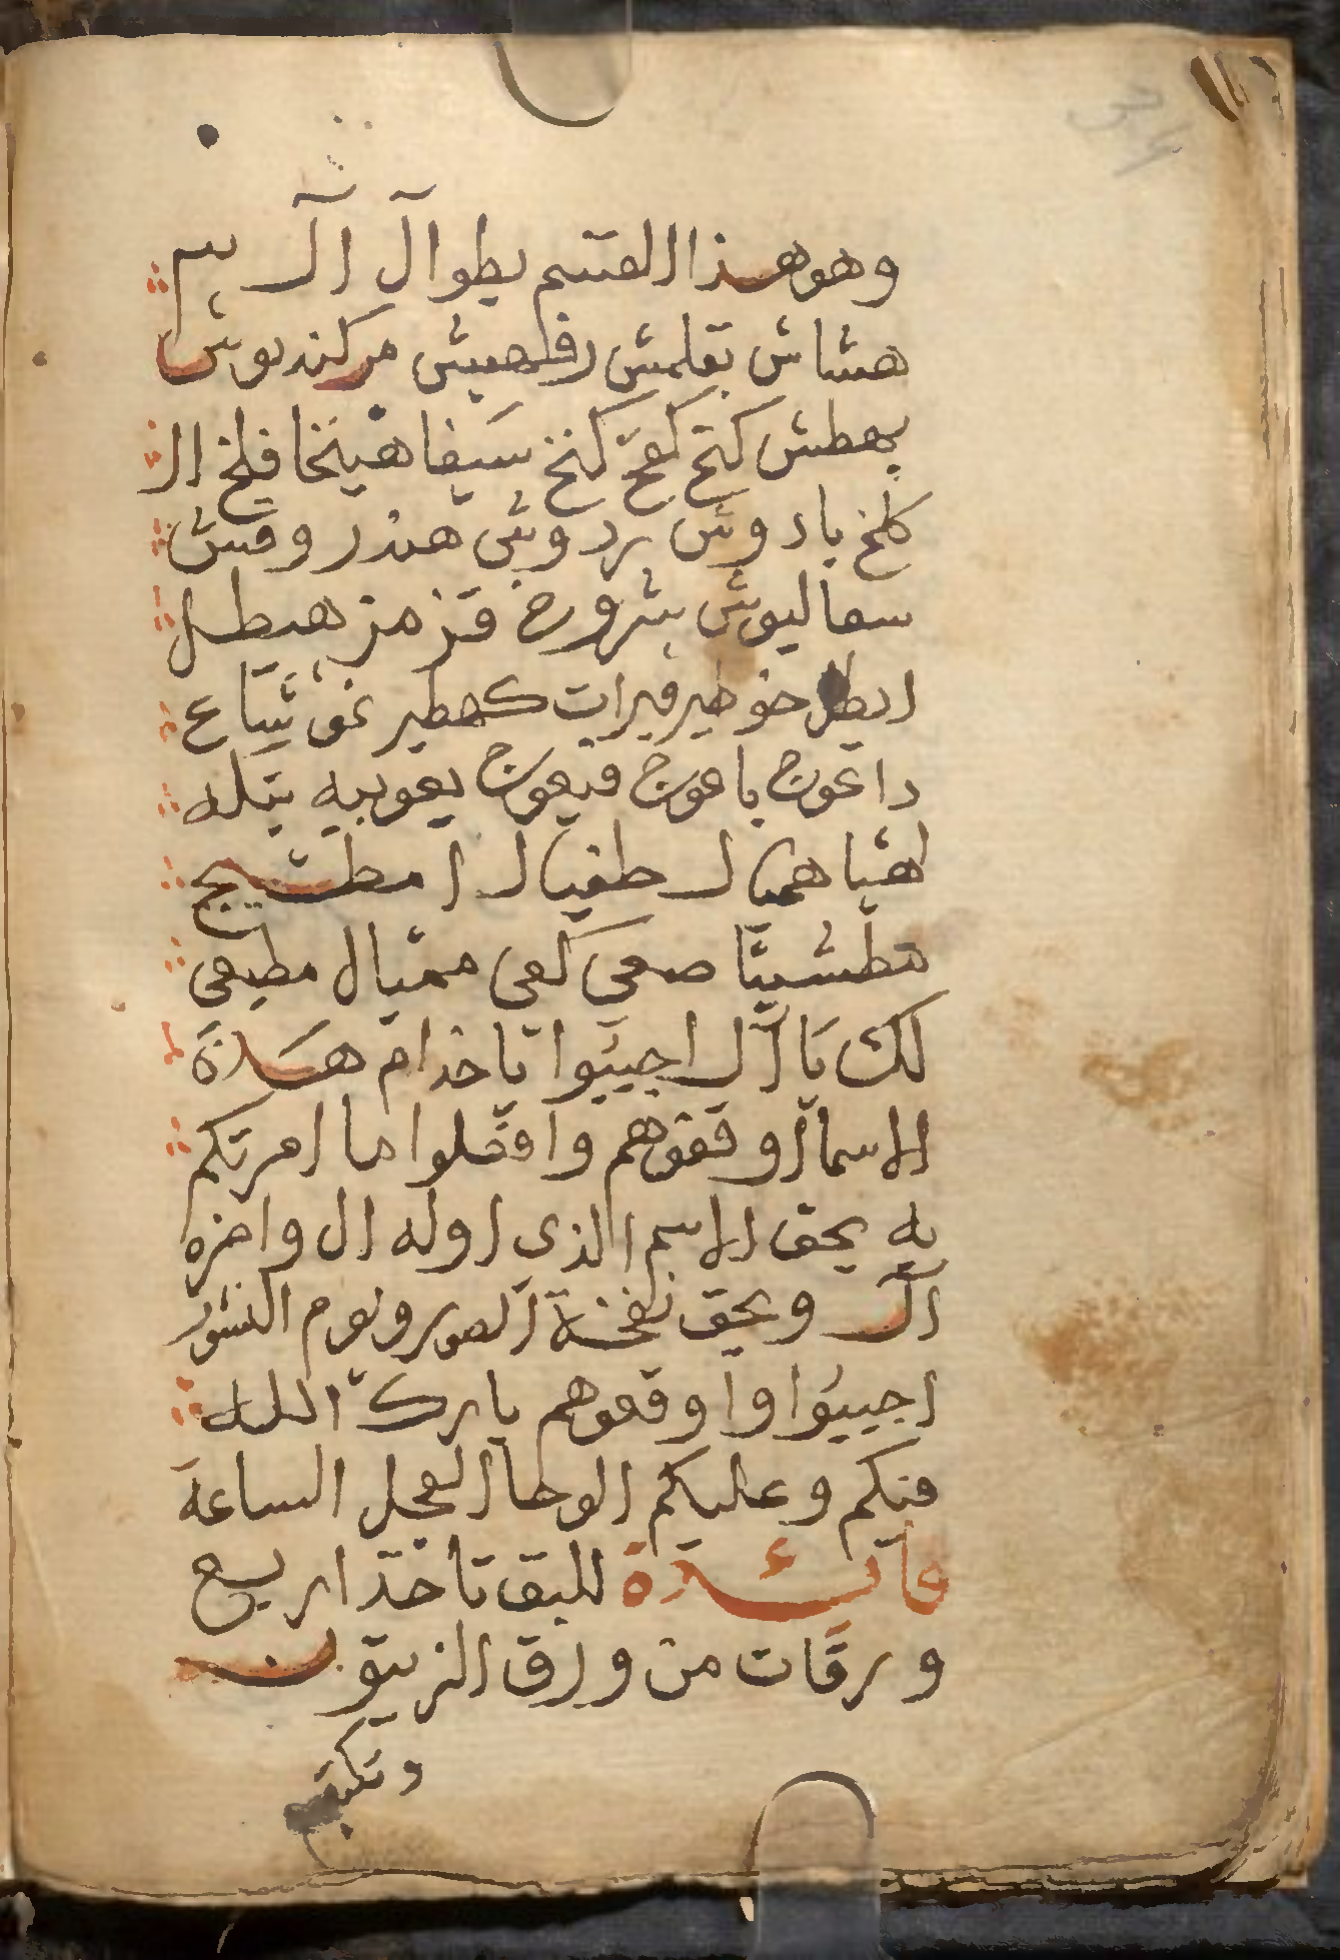 وهو هذا القسم يطوال آل آل
هشاش بقلمش رفلهميش مركندبوش
بهطش كنخ كعخ كنخ سيفاهينخا فلخ ال
كلخ بادوش بردوش هندروفش
سعاليوش بشروخ قزمز هيطل
خوطير قيرات كهطير
داعوج باعوج فيعوج يعوبيه بتكه
اهيا هميال طفيال امطشيج
مطشيثا صعي كعي ممثيال مطيعي
لك يا آل اجيبوا يا خدام هذة
الاسما اوقفوهم وافعلوا ما امرتكم
به بحق الاسم الذى اوله ال واخره
آل وبحق نفخة الصور ويوم النشور
اجيبوا واوقعوهم بارك الله
فيكم وعليكم الوحا العجل الساعة
فائدة للبق تاخذ اربع
ورقات من ورق الزيتون
وتكتب